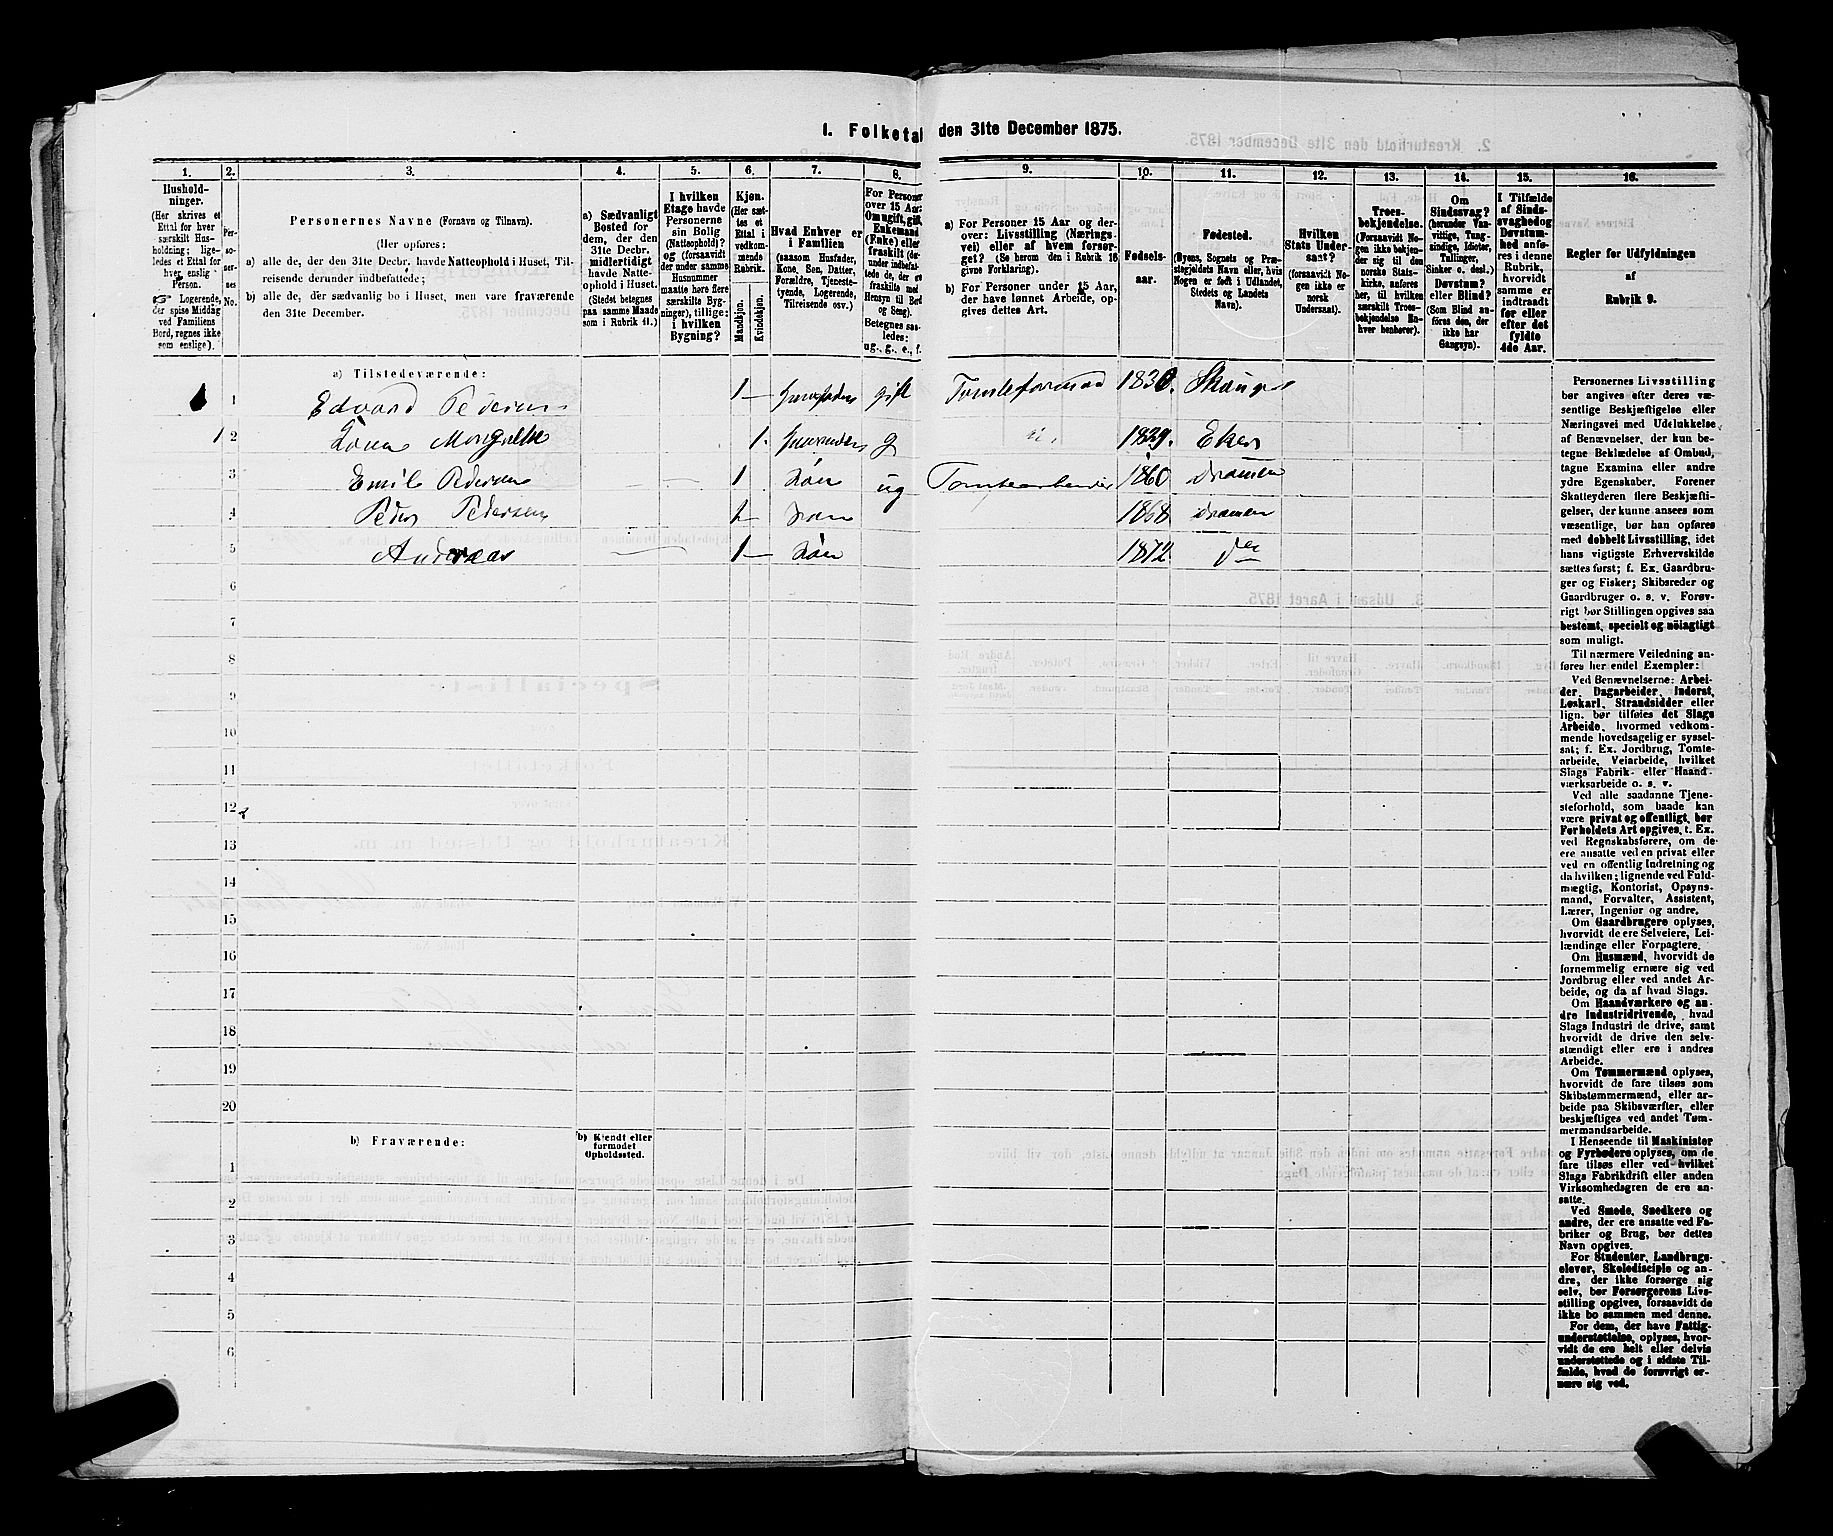 1. Folketal den 31te December 1875.
1. 2. 3. 4. 5. 6. 7. 8. 9. 10. 11. 12. 13. 14. 15. 16.
Hushold-
ninger.
(Her skrives et
Ettal for hver
særskilt Hus-
holdning; lige-
ledes et Ettal for
hver enslig
Person.
☞ Logerende,
der spise Middag
ved Familiens
Bord, regnes ikke
som enslige).
Per-
so-
ner-
nes
No.
Personernes Navne (Fornavn og Tilnavn).
(Her opføres:
a) alle de, der den 31te Decbr. havde Natteophold i Huset, Til-
reisende derunder indbefattede;
b) alle de, der sædvanlig bo i Huset, men vare fraværende
den 31te December.
a) Sædvanligt
Bosted for
dem, der den
31te Decbr.
midlertidigt
havde Natte-
ophold i Huset.
(Stedet betegnes
paa samme Maade
som i Rubrik 11.)
I hvilken
Etage havde
Personerne
sin Bolig
(Natteophold)?
og (forsaavidt
der under samme
Husnummer
maatte høre flere
særskilte Byg-
ninger), tillige:
i hvilken
Bygning?
Kjøn.
(Her sæt-
tes et
Ettal i
vedkom-
mende
Rubrik.
Mandkjøn.
Kvindekjøn.
Hvad Enhver er
i Familien
(saasom Husfader,
Kone, Søn, Datter,
Forældre, Tjeneste-
tyende, Logerende,
Tilreisende osv.)
For Personer
over 15 Aar:
Om ugift, gift,
Enkemand
(Enke) eller
fraskilt (der-
under indbefat-
tede de, der ere
fraskilte med
Hensyn til Bord
og Seng).
Betegnes saa-
ledes:
ug., g., e., f.
a) For Personer 15 Aar og der-
over: Livsstilling (Nærings-
vei) eller af hvem forsør-
get? (Se herom den i Rubrik 16
givne Forklaring).
b) For Personer under 15 Aar,
der have lønnet Arbeide, op-
gives dettes Art.
Fødsels-
aar.
Fødested.
(Byens, Sognets og Præ-
stegjeldets Navn eller, hvis
Nogen er født i Udlandet,
Stedets og Landets
Navn).
Hvilken
Stats Under-
saat?
(forsaavidt No-
gen ikke er
norsk
Undersaat).
Troes-
bekjendelse.
(Forsaavidt No-
gen ikke bekjen-
der sig til den
norske Stats-
kirke, anføres
her, til hvilken
særskilt Troes-
bekjendelse En-
hver henhører).
Om
Sindssvag?
(herunder Van-
vittige, Tung-
sindige, Idioter,
Tullinger,
Sinker o. desl.)
Døvstum?
eller Blind?
(Som Blind an-
føres den, der
ikke har
Gangsyn).
I Tilfælde
af Sinds-
svaghed og
Døvstum-
hed anfø-
res i denne
Rubrik,
hvorvidt
samme er
indtraadt
før eller
efter det
fyldte
4de Aar.
Regler for Udfyldningen
af
Rubrik 9.
a) Tilstedeværende:
1 Edvard Pedersen 1 Huusfader gift Tomteformand 1830. Skouger
1 2 Mongelse 1. g 1829. Eker
3 Emil Pedersen 1 Søn ug Tomtearbeider 1860 Dramen
4 Peder Pedersen 1 Søn 1868 Dramen
5 Andreas 1 Søn 1872
6
7
8
9
10
11
12
13
14
15
16
17
18
19
20
b) Fraværende:
b) Kjendt eller
formodet
Opholdssted.
1
2
3
4
5
6
Personernes Livsstilling
bør angives efter deres væ-
sentlige Beskjæftigelse eller
Næringsvei med Udelukkelse
af Benævnelser, der kun be-
tegne Beklædelse af Ombud,
tagne Examina eller andre
ydre Egenskaber. Forener
Skatteyderen flere Beskjæfti-
gelser, der kunne ansees som
væsentlige, bør han opføres
med dobbelt Livsstilling, idet
hans vigtigste Erhvervskilde
sættes først; f. Ex. Gaardbru-
ger og Fisker; Skibsreder og
Gaardbruger o. s. v. Forøv-
rigt bør Stillingen opgives saa
bestemt, specielt og nöiagtigt
som muligt.
Til nærmere Veiledning an-
føres her endel Exempler:
Ved Benævnelserne: Arbei-
der, Dagarbeider, Inderst,
Løskarl, Strandsidder eller
lign. bør tilføies det Slags
Arbeide, hvormed vedkom-
mende hovedsagelig er syssel-
sat; f. Ex. Jordbrug, Tomte-
arbeide, Veiarbeide, hvilket
Slags Fabrik- eller Haand-
værksarbeide o. s. v.
Ved alle saadanne Tjene-
steforhold, som baade kan
være privat og offentligt, bør
Forholdets Art opgives, t. Ex.
ved Regnskabsførere, om de
ere ansatte ved en privat eller
ved en offentlig Indretning og
da hvilken; lignende ved Fuld-
mægtig, Kontorist, Opsyns-
mand, Forvalter, Assistent,
Lærer, Ingeniør og andre.
Om Gaardbrugere oplyses,
hvorvidt de ere Selveiere, Lei-
lændinge eller Forpagtere.
Om Husmænd, hvorvidt de
fornemmelig ernære sig ved
Jordbrug eller ved andet Ar-
beide, og da af hvad Slags.
Om Haandværkere og an-
dre Industridrivende, hvad
Slags Industri de drive, samt
hvorvidt de drive den selv-
stændigt eller ere i andres
Arbeide.
Om Tømmermænd oplyses,
hvorvidt de fare tilsøs som
Skibstømmermænd, eller ar-
beide paa Skibsværfter, eller
beskjæftiges ved andet Tøm-
mermandsarbeide.
I Henseende til Maskinister
og Fyrbødere oplyses, om de
fare tilsøs eller ved hvilket
Slags Fabrikdrift eller anden
Virksomhedsgren de ere an-
satte.
Ved Smede, Snedkere og
andre, der ere ansatte ved Fa-
briker og Brug, bør dettes
Navn opgives.
For Studenter, Landbrugs-
elever, Skoledisciple og an-
dre, der ikke forsørge sig
selv, bør Forsørgerens Livs-
stilling opgives, forsaavidt de
ikke bo sammen med denne.
For dem, der have Fattig-
understøttelse, oplyses, hvor-
vidt de ere helt eller delvis
understøttede og i sidste Til-
fælde, hvad de forøvrigt er-
nære sig ved.